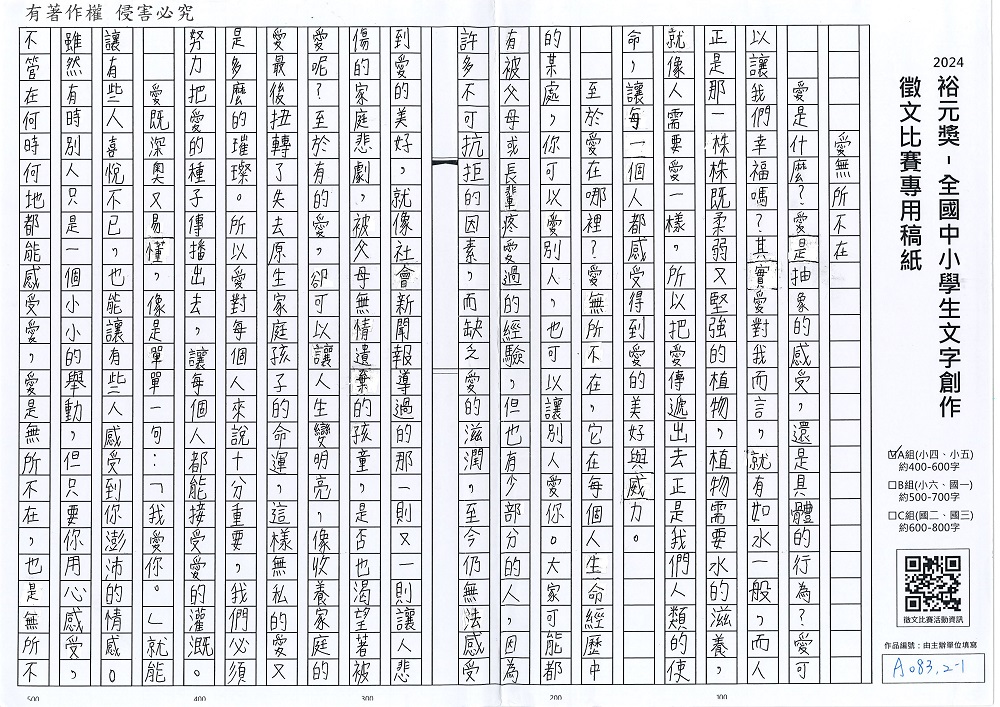 有著作權 侵害必究
2024
裕元獎-全國中小學生文字創作
徵文比賽專用稿紙
☑A組(小四、小五)
約400-600字
□B組(小六、國一)
約500-700字
□C組(國二、國三)
約600-800字
徵文比賽活動資訊
作品編號：由主辦單位填寫
A083,2-1
愛無所不在
愛是什麼？愛是抽象的感受，還是具體的行為？愛可
以讓我們幸福嗎？其實愛對我而言，就有如水一般，而人
正是那一株株既柔弱又堅強的植物，植物需要水的滋養，
就像人需要愛一樣，所以把愛傳遞出去正是我們人類的使
命，讓每一個人都感受得到愛的美好與威力。
至於愛在哪裡？愛無所不在，它在每個人生命經歷中
的某處，你可以愛別人，也可以讓別人愛你。大家可能都
有被父母或長輩疼愛過的經驗，但也有少部分的人，因為
許多不可抗拒的因素，而缺乏愛的滋潤，至今仍無法感受
到愛的美好，就像社會新聞報導過的那一則又一則讓人悲
傷的家庭悲劇，被父母無情遺棄的孩童，是否也渴望著被
愛呢？至於有的愛，卻可以讓人生變明亮，像收養家庭的
愛最後扭轉了失去原生家庭孩子的命運，這樣無私的愛又
是多麼的璀璨。所以愛對每個人來說十分重要，我們必須
努力把愛的種子傳播出去，讓每個人都能接受愛的灌溉。
愛既深奧又易懂，像是單單一句：「我愛你。」就能
讓有些人喜悅不已，也能讓有些人感受到你澎沛的情感。
雖然有時別人只是一個小小的舉動，但只要你用心感受，
不管在何時何地都能感受愛，愛是無所不在，也是無所不
100
200
300
400
500